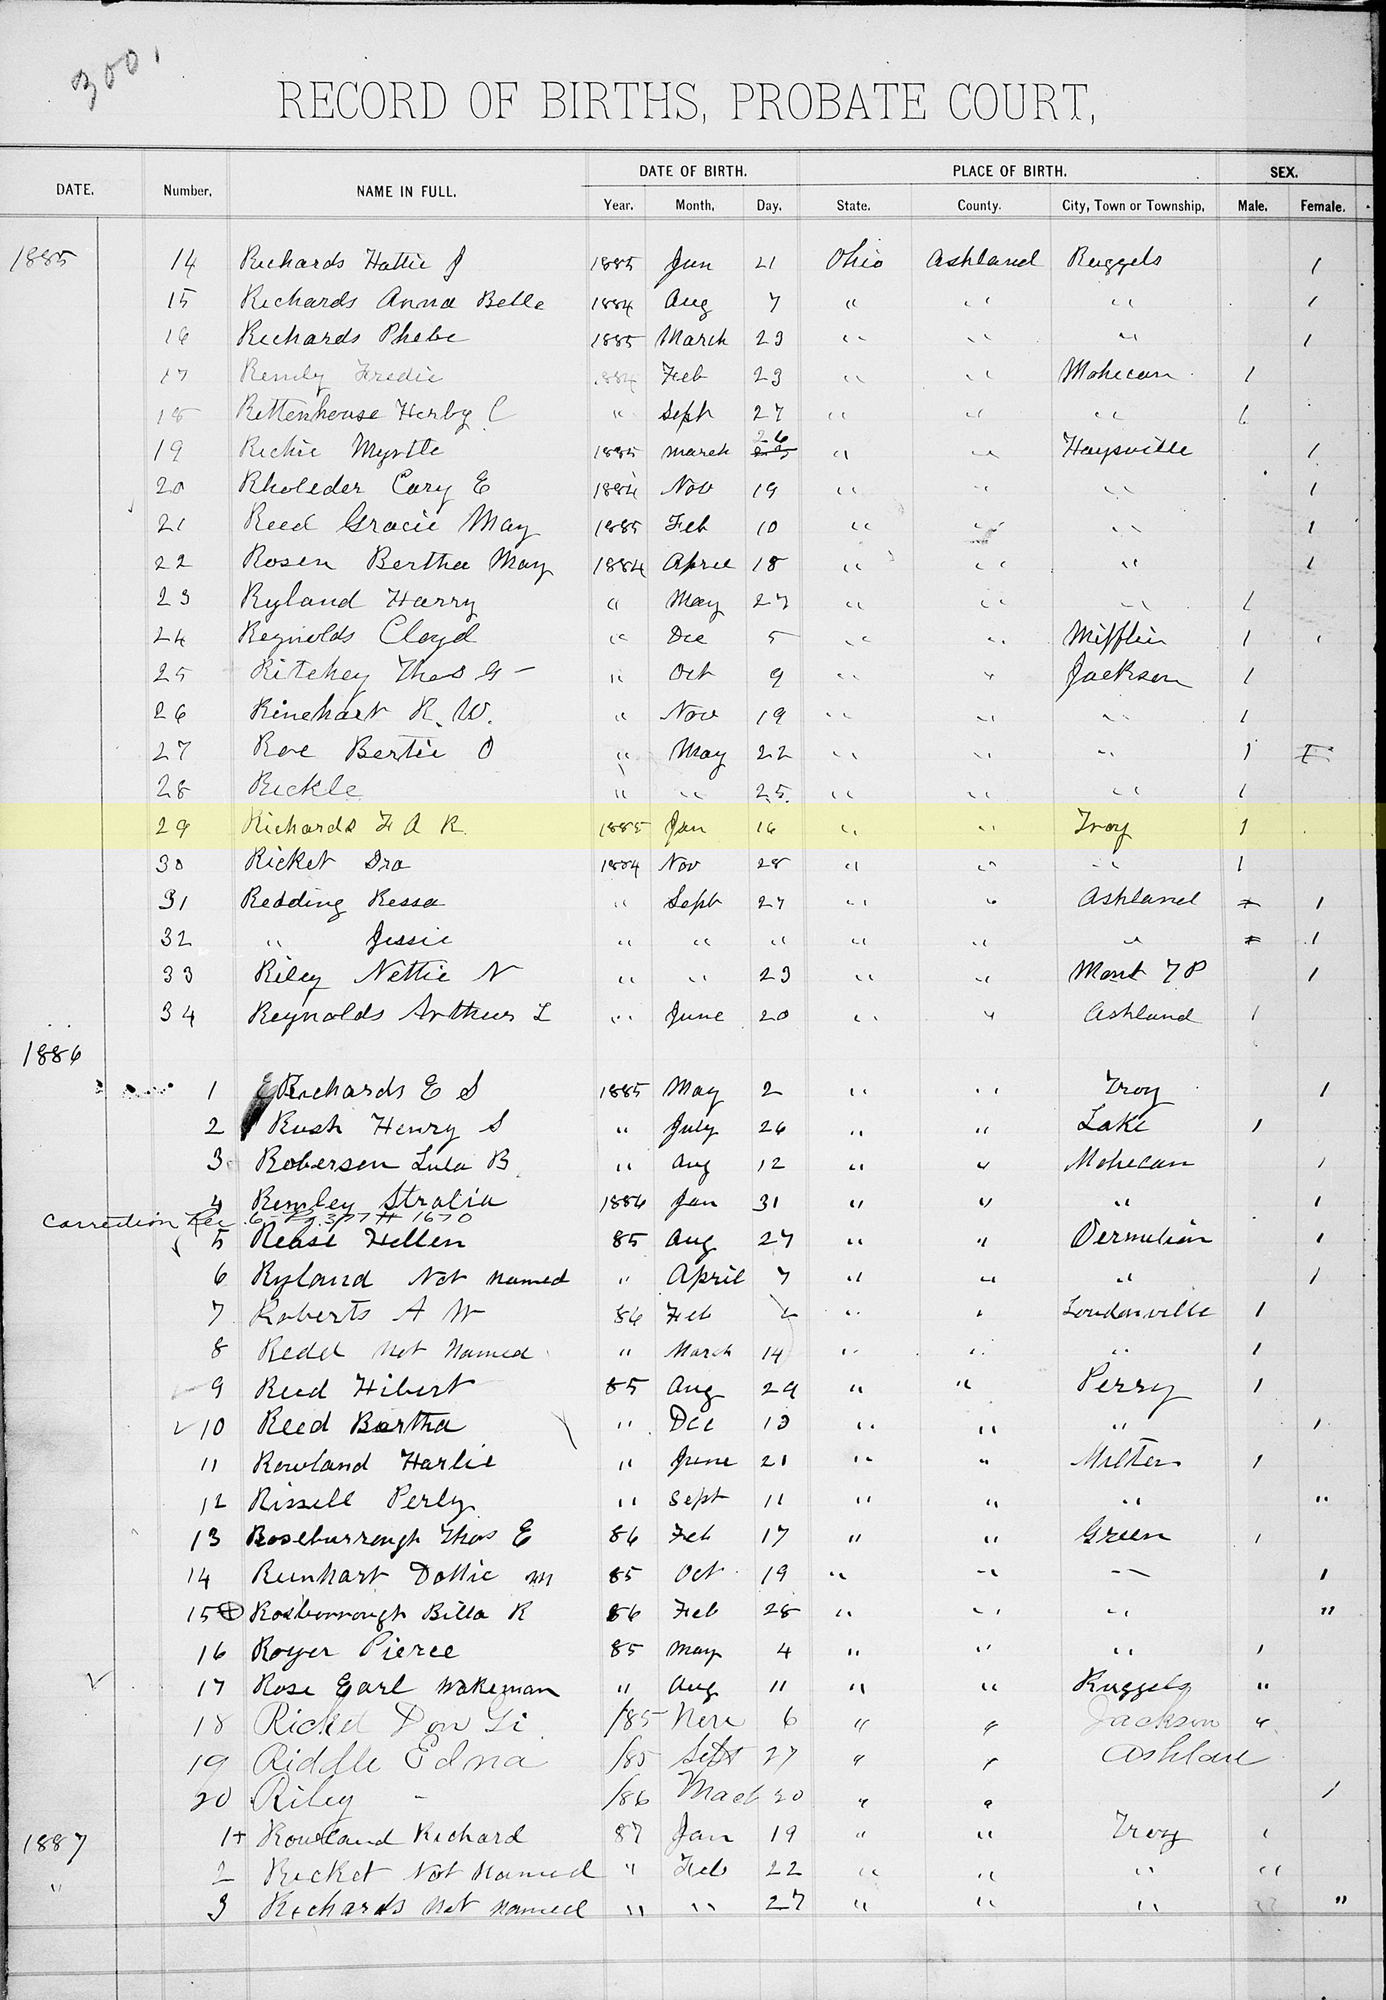 300
RECORD OF BIRTHS, PROBATE COURT,
DATE. Number. NAME IN FULL. DATE OF BIRTH. PLACE OF BIRTH. SEX.
Year. Month. Day. State. County. City, Town or Township. Male. Female.
1885 14 Richards Hattie J 1885 Jan 21 Ohio Ashland Ruggels 1
15 Richards Anna Belle 1884 Aug 7 " " " 1
16 Richards Phebe 1885 March 23 " " " 1
17 Remly Fredie 1884 Feb 23 " " Mohecan 1
18 Rittenhouse Herby C " Sept 27 " " " 1
19 Richie Myrtle 1885 March 26 " " Haysville 1
20 Rholeder Cary E 1884 Nov 19 " " " 1
21 Reed Gracie May 1885 Feb 10 " " " 1
22 Rosen Bertha May 1884 April 18 " " " 1
23 Ryland Harry " May 27 " " " 1
24 Reynolds Cloyd " Dec 5 " " Mifflin 1
25 Ritchey Thos G - " Oct 9 " " Jackson 1
26 Rinehart R. W. " Nov 19 " " " 1
27 Roe Bertie O " May 22 " " " 1
28 Rickle " " 25 " " " 1
29 Richards F A R. 1885 Jan 16 " " Troy 1
30 Ricket Ira 1884 Nov 28 " " " 1
31 Redding Ressa " Sept 27 " " Ashland 1
32 " Jessie " " " " " " 1
33 Riley Nettie N " " 23 " " Mont T P 1
34 Reynolds Arthur L " June 20 " " Ashland 1
1886
1 Richards E S 1885 May 2 " " Troy 1
2 Rush Henry S " July 26 " " Lake 1
3 Roberson Lula B " Aug 12 " " Mohecan 1
4 Remley Stralia 1886 Jan 31 " " " 1
Correction Rec 6 - Pg. 397 # 1670
5 Rease Hellen 85 Aug 27 " " Vermilion 1
6 Ryland Not Named " April 7 " " " 1
7 Roberts A W 86 Feb " " Loudonville 1
8 Redd Not Named " March 14 " " " 1
9 Reed Hibert 85 Aug 29 " " Perry 1
10 Reed Bertha " Dec 13 " " " 1
11 Rowland Harlie " June 21 " " Milton 1
12 Rissell Perly " Sept 11 " " " "
13 Roseburrough Thos E 86 Feb 17 " " Green 1
14 Reinhart Dottie M 85 Oct 19 " " " 1
15 Rosborrough Billa R 86 Feb 28 " " " "
16 Royer Pierce 85 May 4 " " " 1
17 Rose Earl Wakeman " Aug 11 " " Ruggels "
18 Rickel Don Gi /85 Nove 6 " " Jackson "
19 Riddle Edna /85 Sept 27 " " Ashland
20 Riley - /86 Mach 20 " " 1
1887 1+ Rowland Richard 87 Jan 19 " " Troy 1
" 2 Ricket Not Named " Feb 22 " " " "
3 Richards Not Named " " 27 " " " "